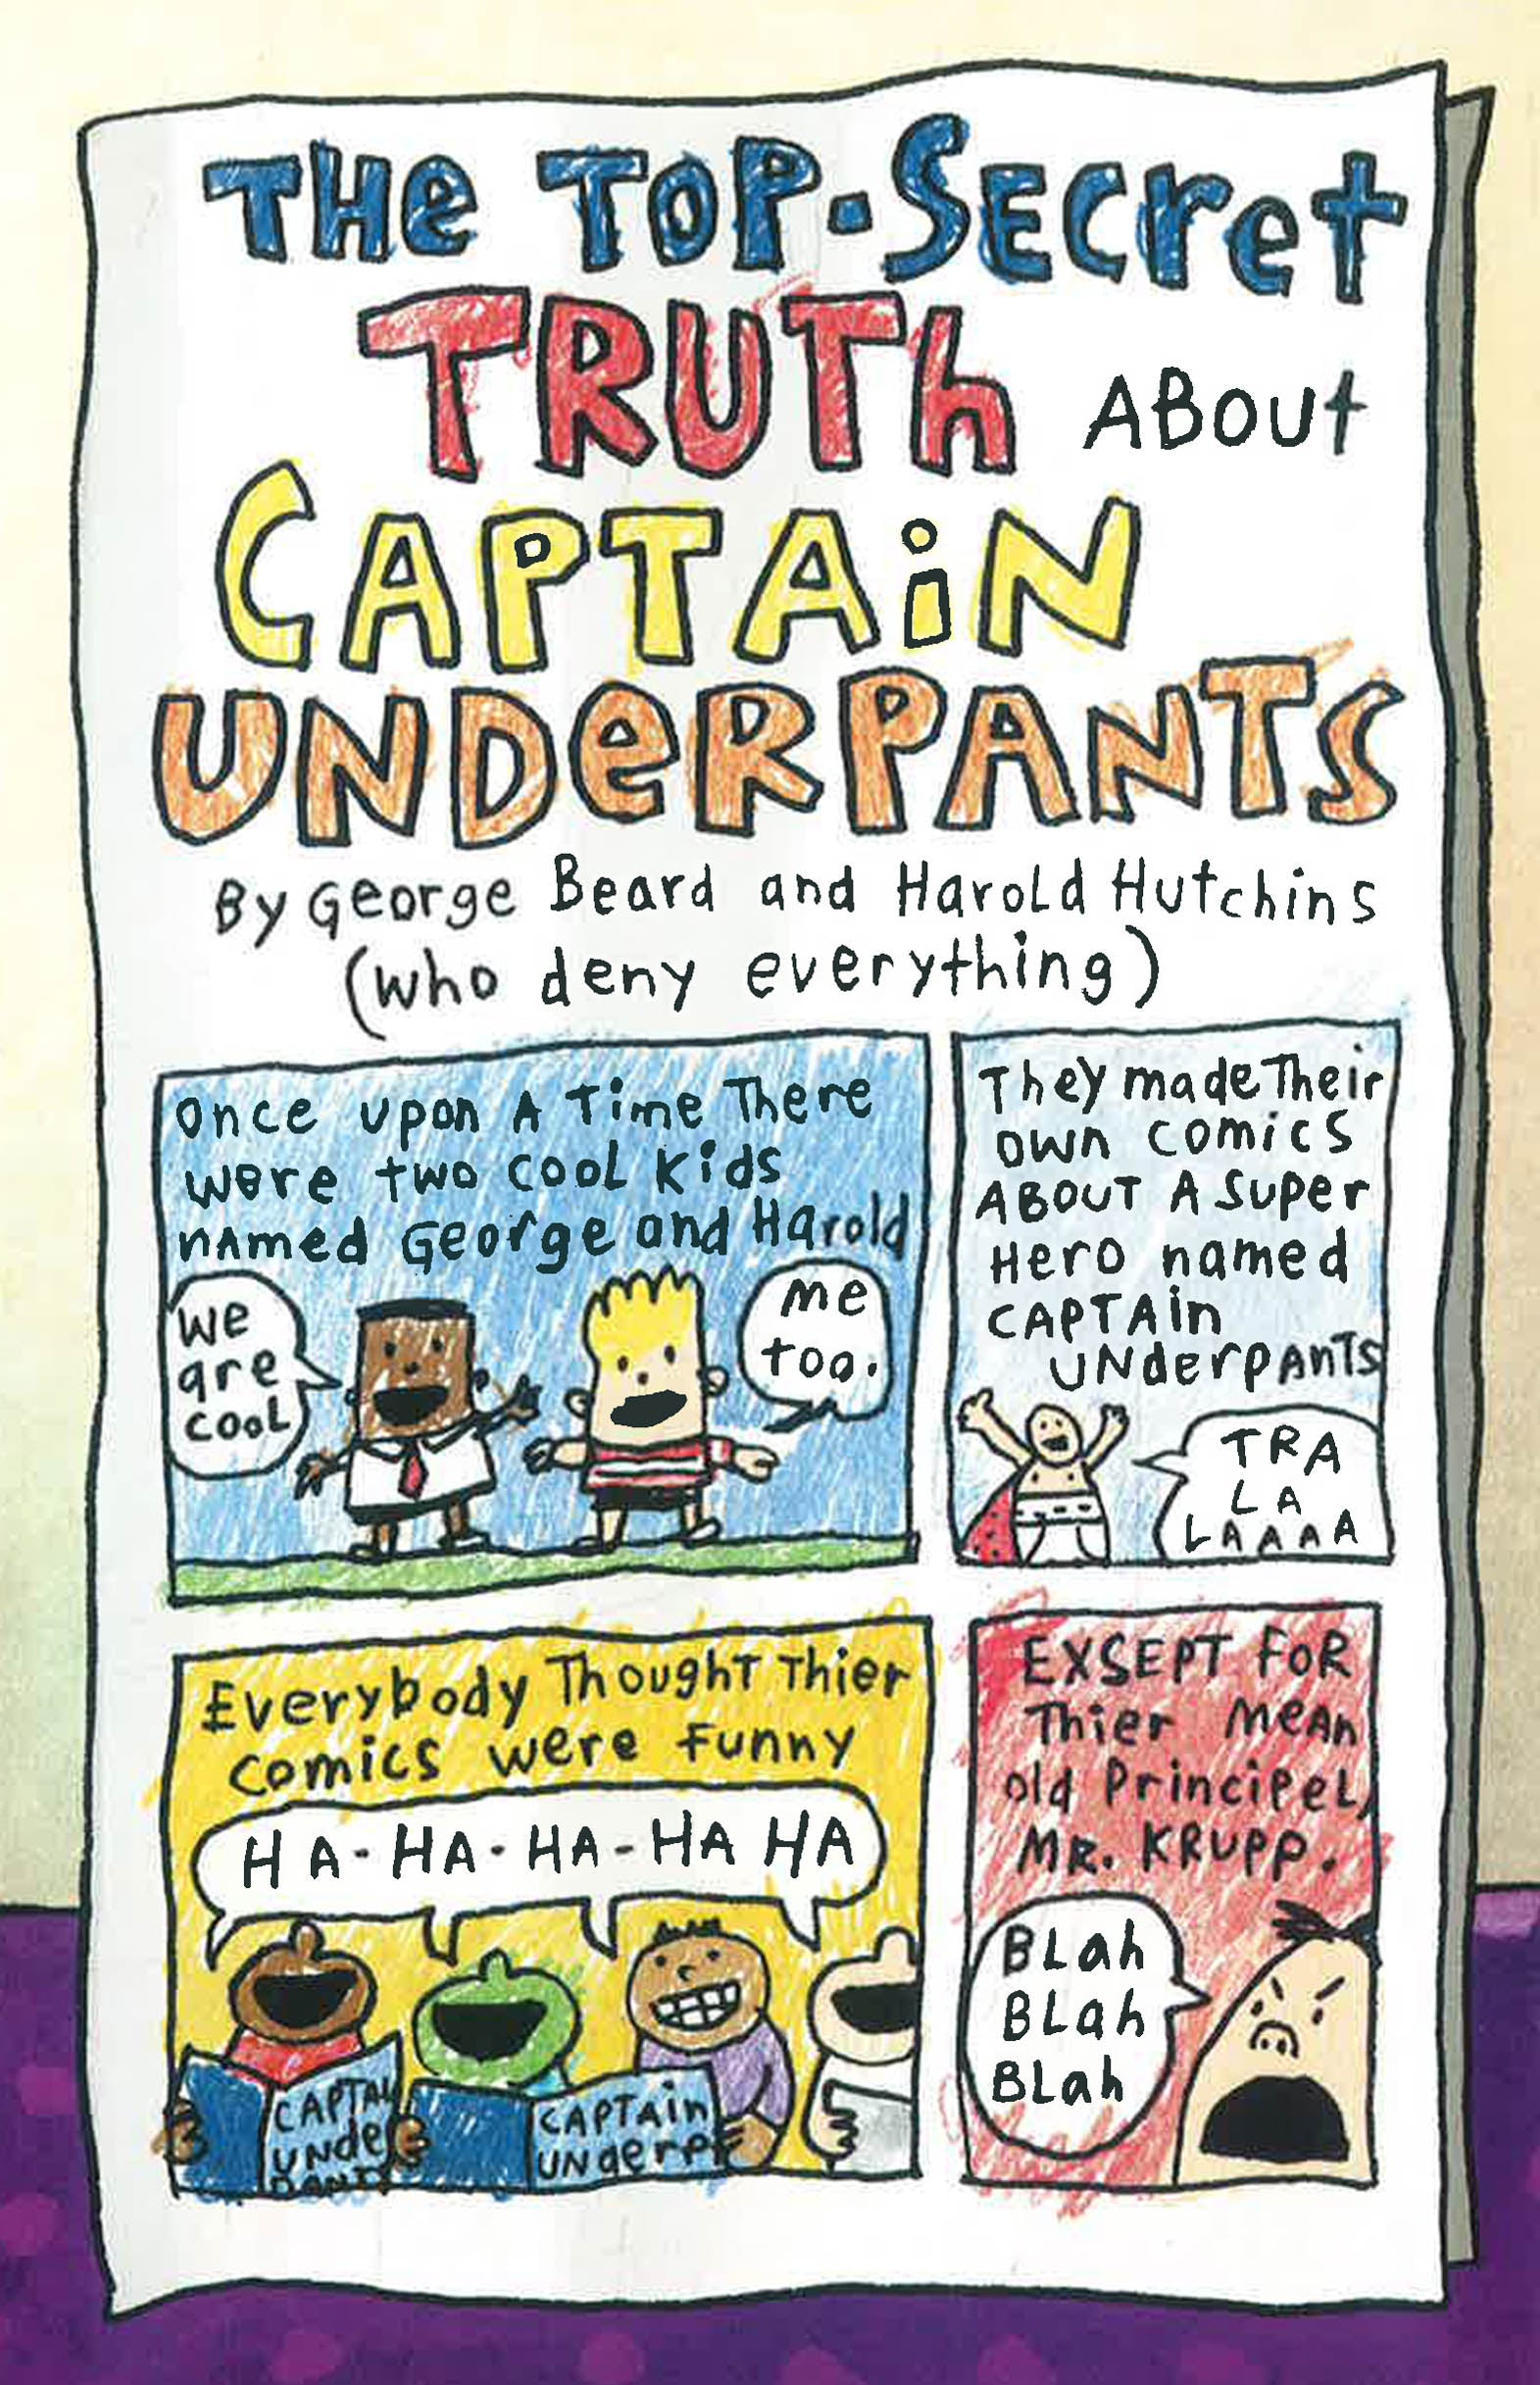 THe TOP-SECret
TRUTh ABOUt
CAPTAiN
UNDeRPANTS
By George Beard and Harold Hutchins
(who deny everything)
Once upon A Time There
were two cool Kids
nAmed George and Harold
We
are
cool
me
too.
They made Their
own comics
ABOUT A Super
Hero named
CAPTAin
UNderpAnTs
TRA
LA
LAAAA
Everybody ThoughT Thier
comics were funny
HA-HA-HA-HA HA
CAPTAi
UNde
PANTS
CAPTAin
UNderp
EXSEPT FOR
Thier MeAn
old PrinciPeL,
MR. KRUPP.
BLah
BLah
BLah